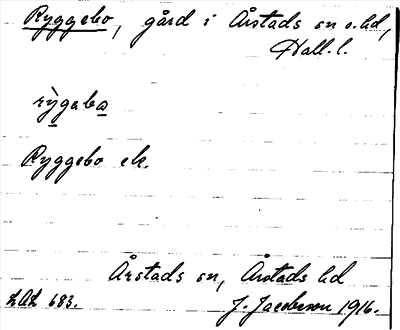 Ryggebo, gård i Årstads sn o. hd,
Hall. l.
rỳgəba
Ryggebo ek.
Årstads sn, Årstads hd
LAL 683. J. Jacobsson 1916.